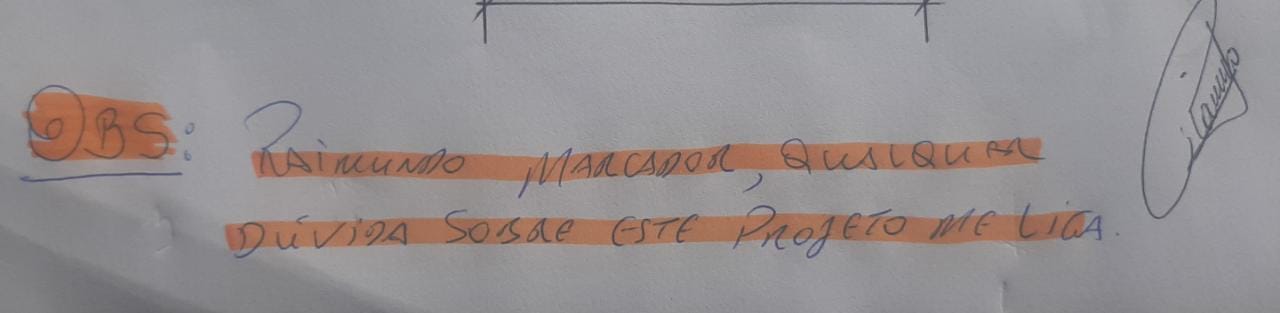 OBS: RAIMUNDO MARCADOR, QUALQUER
DÚVIDA SOBRE ESTE PROJETO ME LIGA.